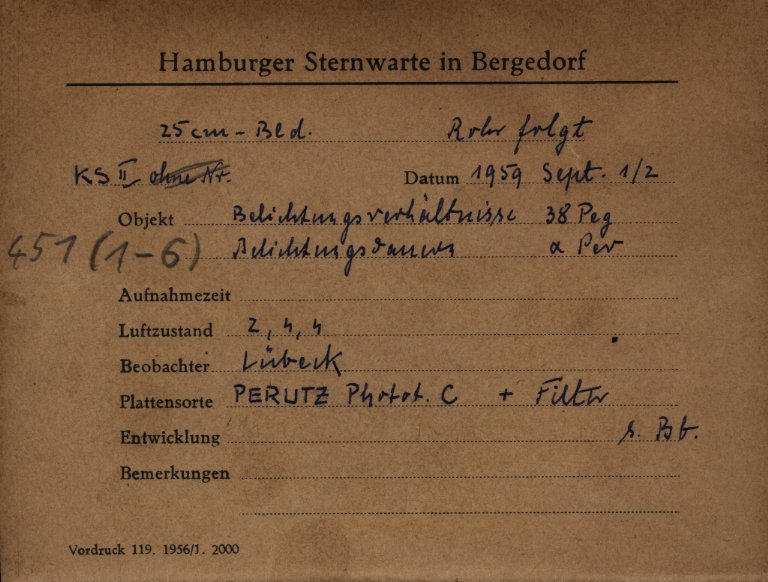 Hamburger Sternwarte in Bergedorf
25cm - Bld. Rohr folgt
KS II ohne Nr. Datum 1959 Sept. 1/2
Objekt Belichtungsverhältnisse 38 Peg
451 (1-6) Belichtungsdauern α Per
Aufnahmezeit
Luftzustand 2, 4, 4
Beobachter Lübeck
Plattensorte PERUTZ Phot. C + Filter
Entwicklung s. Bb.
Bemerkungen
Vordruck 119. 1956/1. 2000